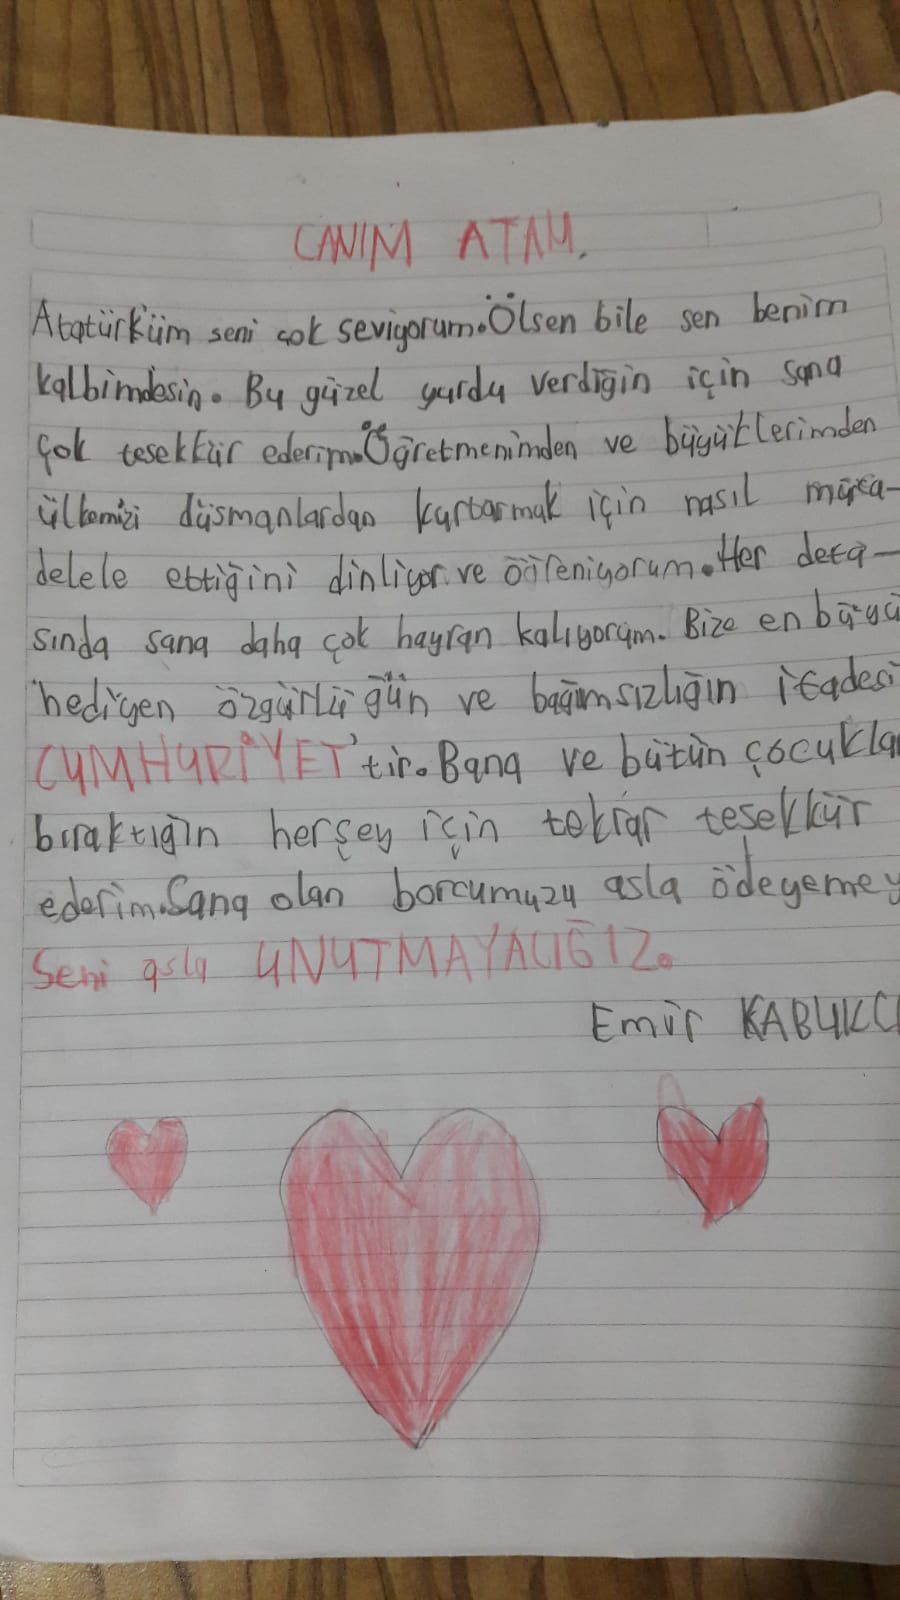 CANIM ATAM.
Atatürküm seni çok seviyorum. Ölsen bile sen benim
kalbimdesin. Bu güzel yurdu verdiğin için sana
çok tesekkür ederim. Öğretmenimden ve büyüklerimden
ülkemizi düsmanlardan kurtarmak için nasıl müca-
delele ettiğini dinliyor ve öğreniyorum. Her defa-
sında sana daha çok hayran kalıyorum. Bize en büyü
hediyen özgürlüğün ve bağımsızlığın ifadesi
CUMHURİYET'tir. Bana ve bütün çocukla
bıraktığın herşey için tekrar teşekkür
ederim. Sana olan borcumuzu asla ödeyemey
Seni asla UNUTMAYACIĞIZ.
Emir KABUKC